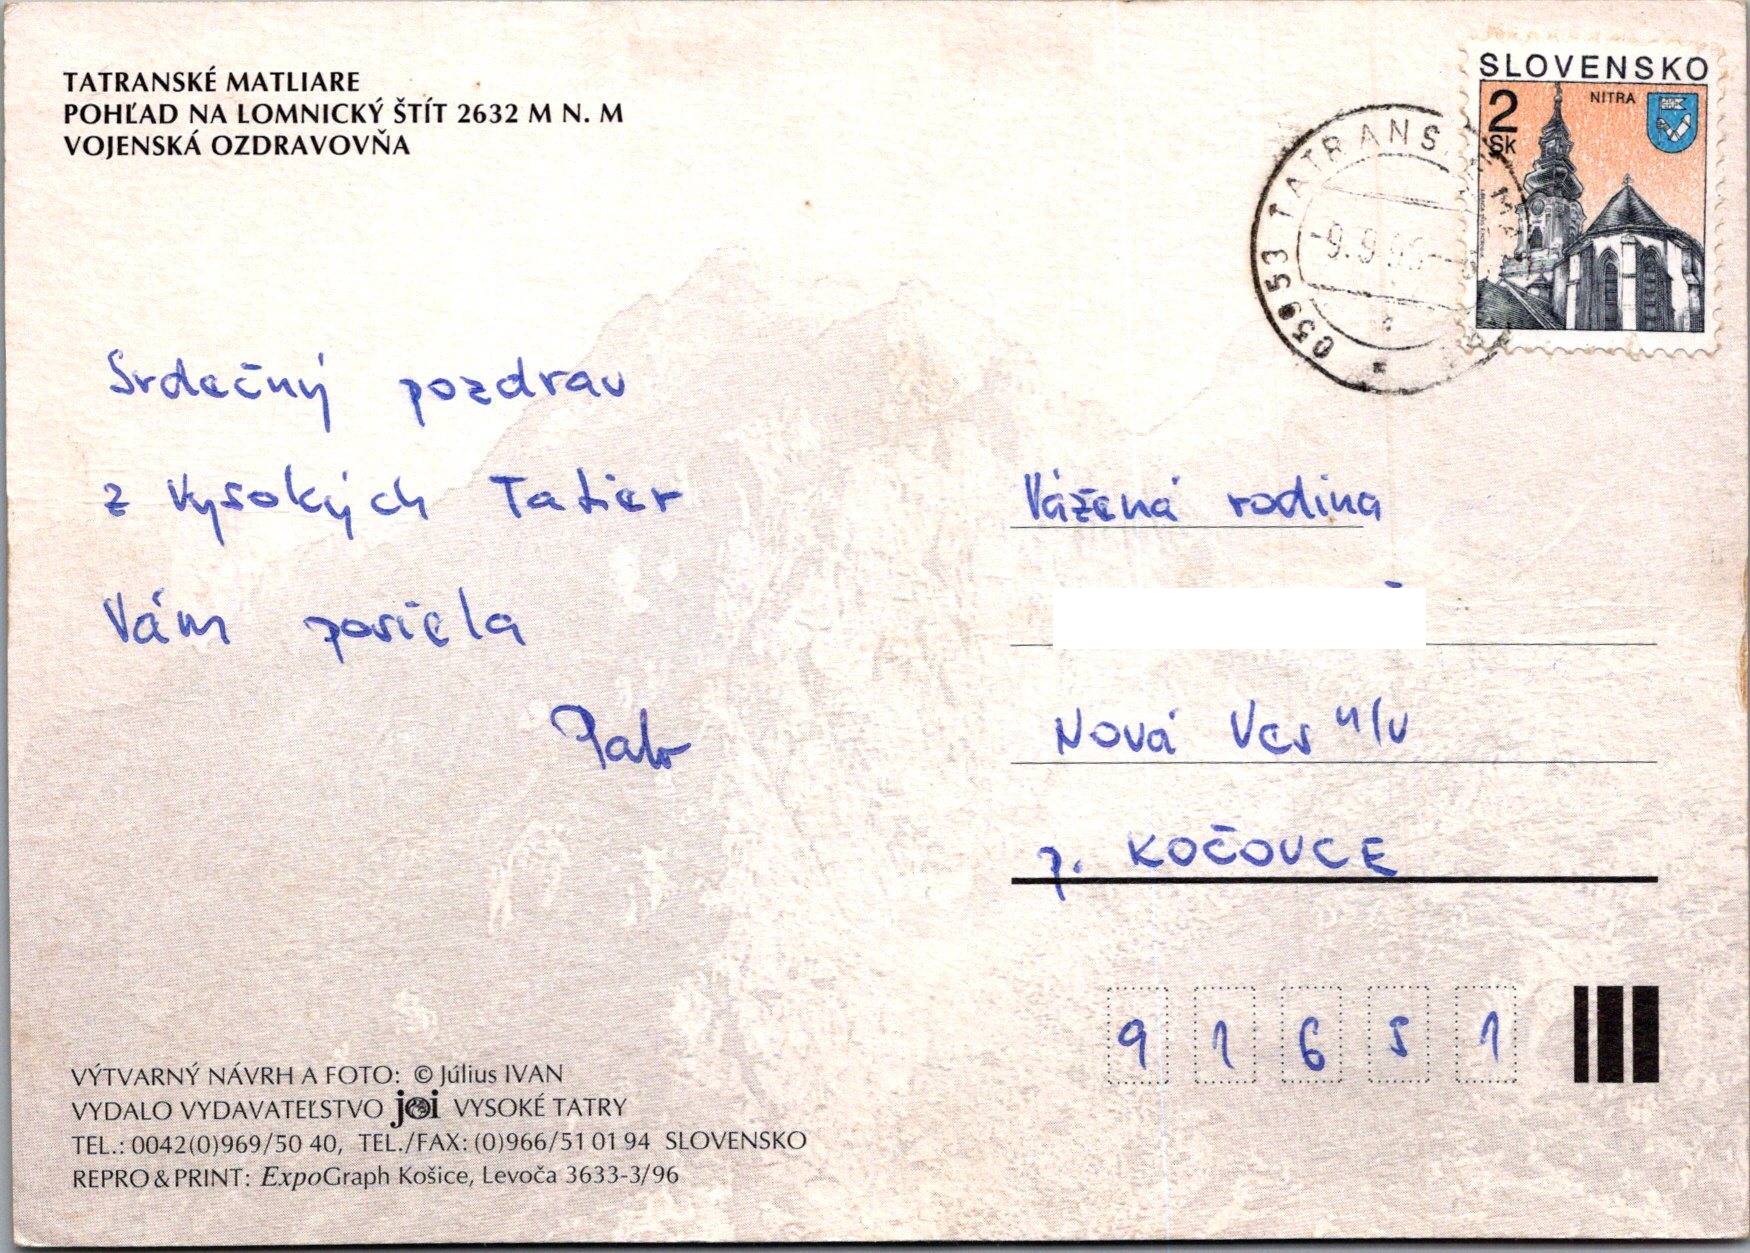 TATRANSKÉ MATLIARE
POHĽAD NA LOMNICKÝ ŠTÍT 2632 M N. M
VOJENSKÁ OZDRAVOVŇA
SLOVENSKO
NITRA
2
Sk
059 53 TATRANS
-9.9.96
Srdečný pozdrav
z Vysokých Tatier
Vám posiela
Palo
Vážená rodina
Nová Ves n/v
p. KOČOVCE
9 1 6 5 1
VÝTVARNÝ NÁVRH A FOTO: © Július IVAN
VYDALO VYDAVATEĽSTVO joi VYSOKÉ TATRY
TEL.: 0042(0)969/50 40, TEL./FAX: (0)966/51 01 94 SLOVENSKO
REPRO & PRINT: ExpoGraph Košice, Levoča 3633-3/96